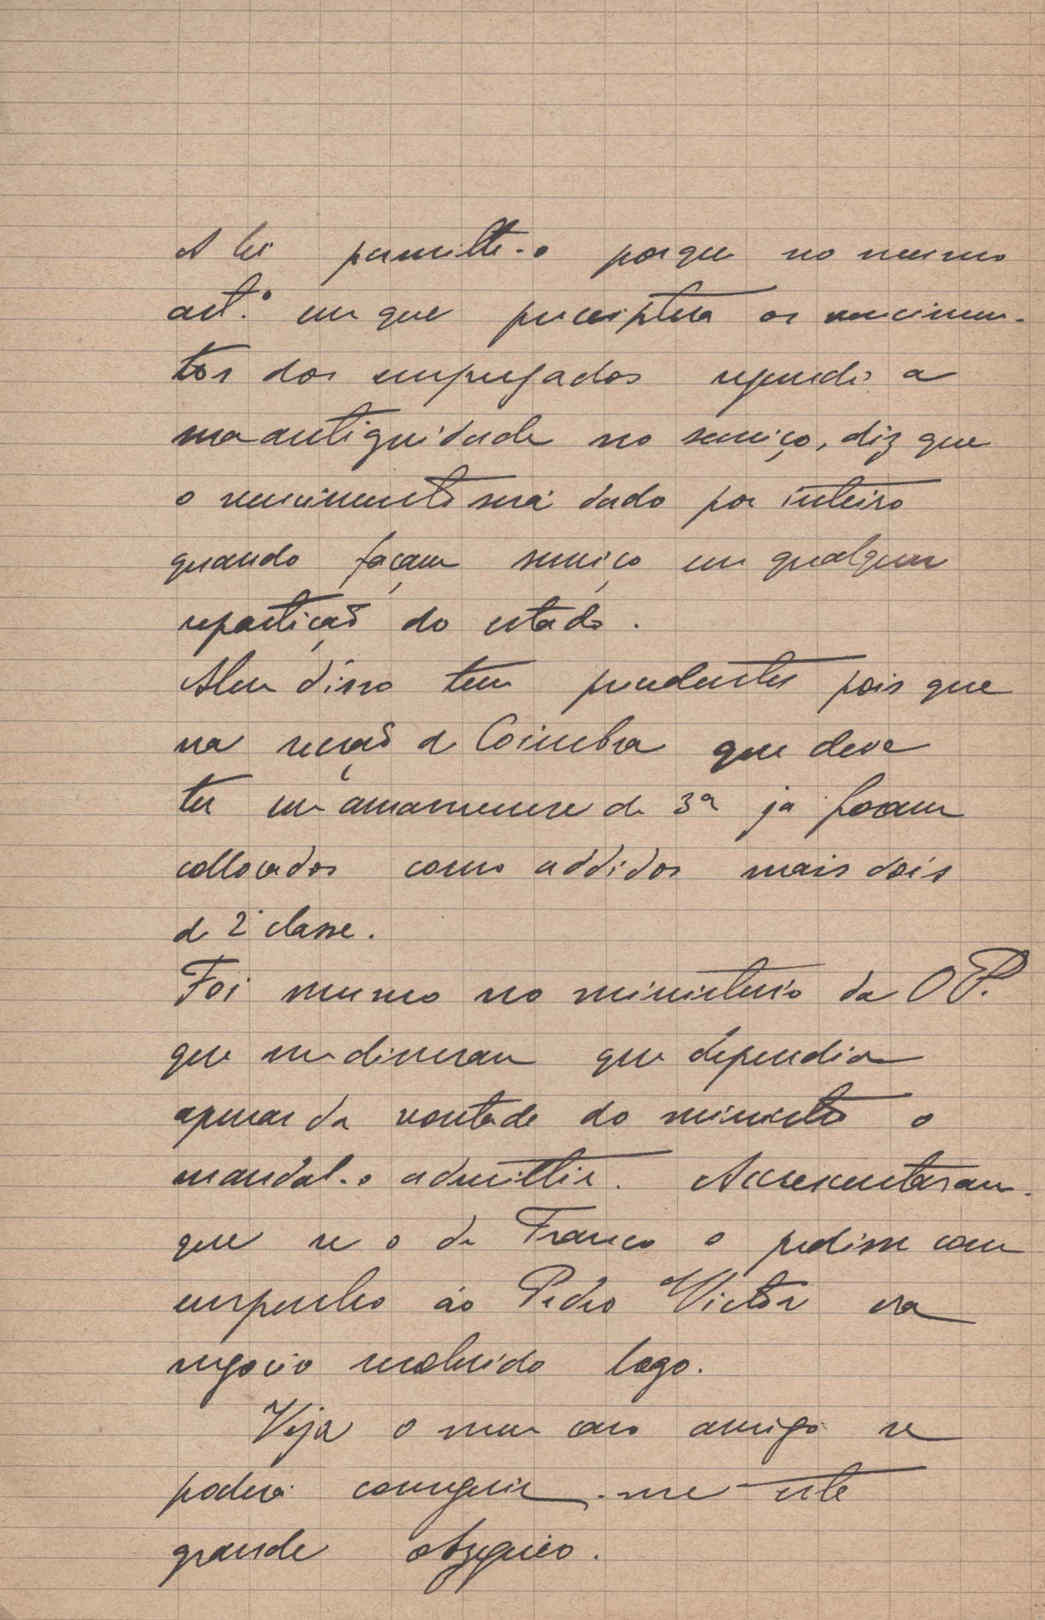 A lei permitte-o porque no mesmo
art.º em que preceptua os vencimen-
tos dos empregados segundo a
sua antiguidade no serviço, diz que
o vencimento será dado por inteiro
quando façam serviço em qualquer
repartição do estado.
Alem disso tem precedentes pois que
na secção de Coimbra que deve
ter um amanuense de 3ª ja foram
collocados como addidos mais dois
de 2ª classe.
Foi mesmo no ministerio da O P.
que me disseram que dependia
apenas da vontade do ministro o
mandal-o admittir. Accrescentaram
que se o dr Franco o pedisse com
empenho ao Pedro Victor era
negocio resolvido logo.
Veja o meu caro amigo se
poderá conseguir-me este
grande obzequio.